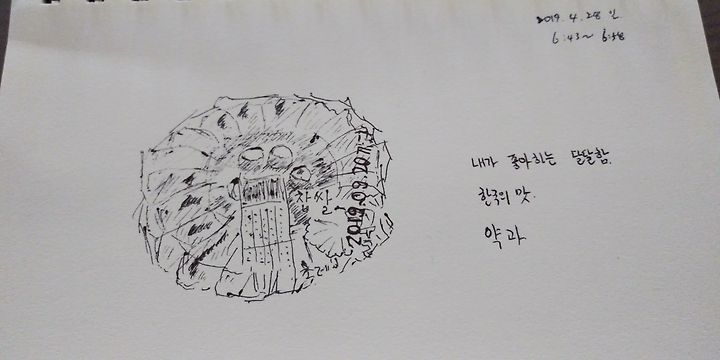 2019. 4. 28 일.
6:43~ 6:58
내가 좋아하는 달달함.
한국의 맛.
약과
찹쌀
2019.09.20